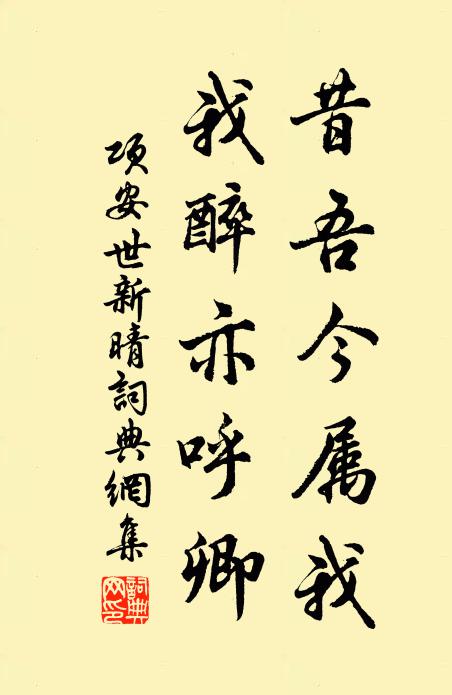 昔吾今属我
我醉亦呼卿
项安世新晴詞典網集
詞典网印